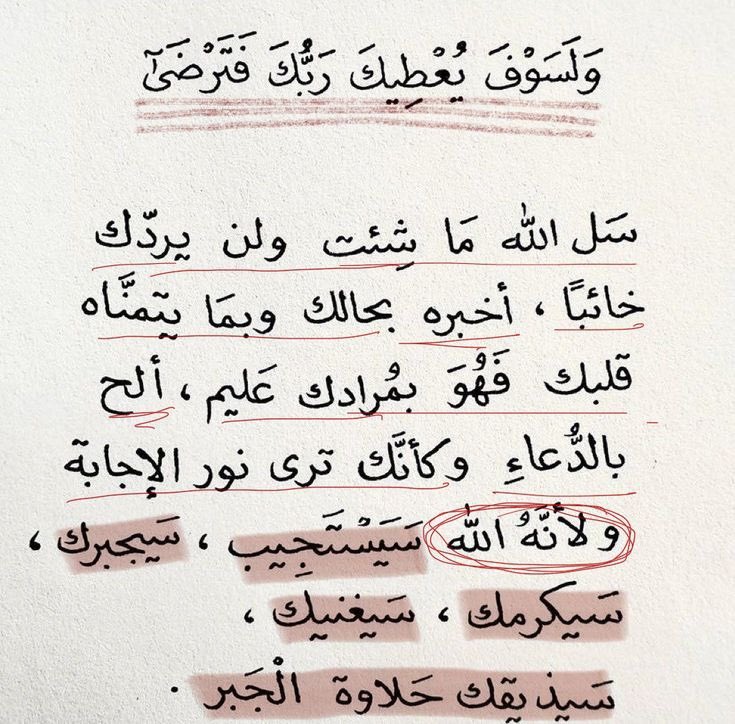 وَلَسَوْفَ يُعْطِيكَ رَبُّكَ فَتَرْضَىٰٓ
سَل الله مَا شِئت ولن يردّك
خائبًا ، أخبره بحالك وبمَا يتمنَّاه
قلبك فَهُوَ بمُرادك عَليم ، ألح
بالدُّعاءِ وكأنَّك ترى نور الإجابة
ولأنَّهُ الله سَيَسْتَجِيب ، سَيجبرك ،
سَيكرمك ، سَيغنيك ،
سَيذيقك حَلاوة الْجَبر .